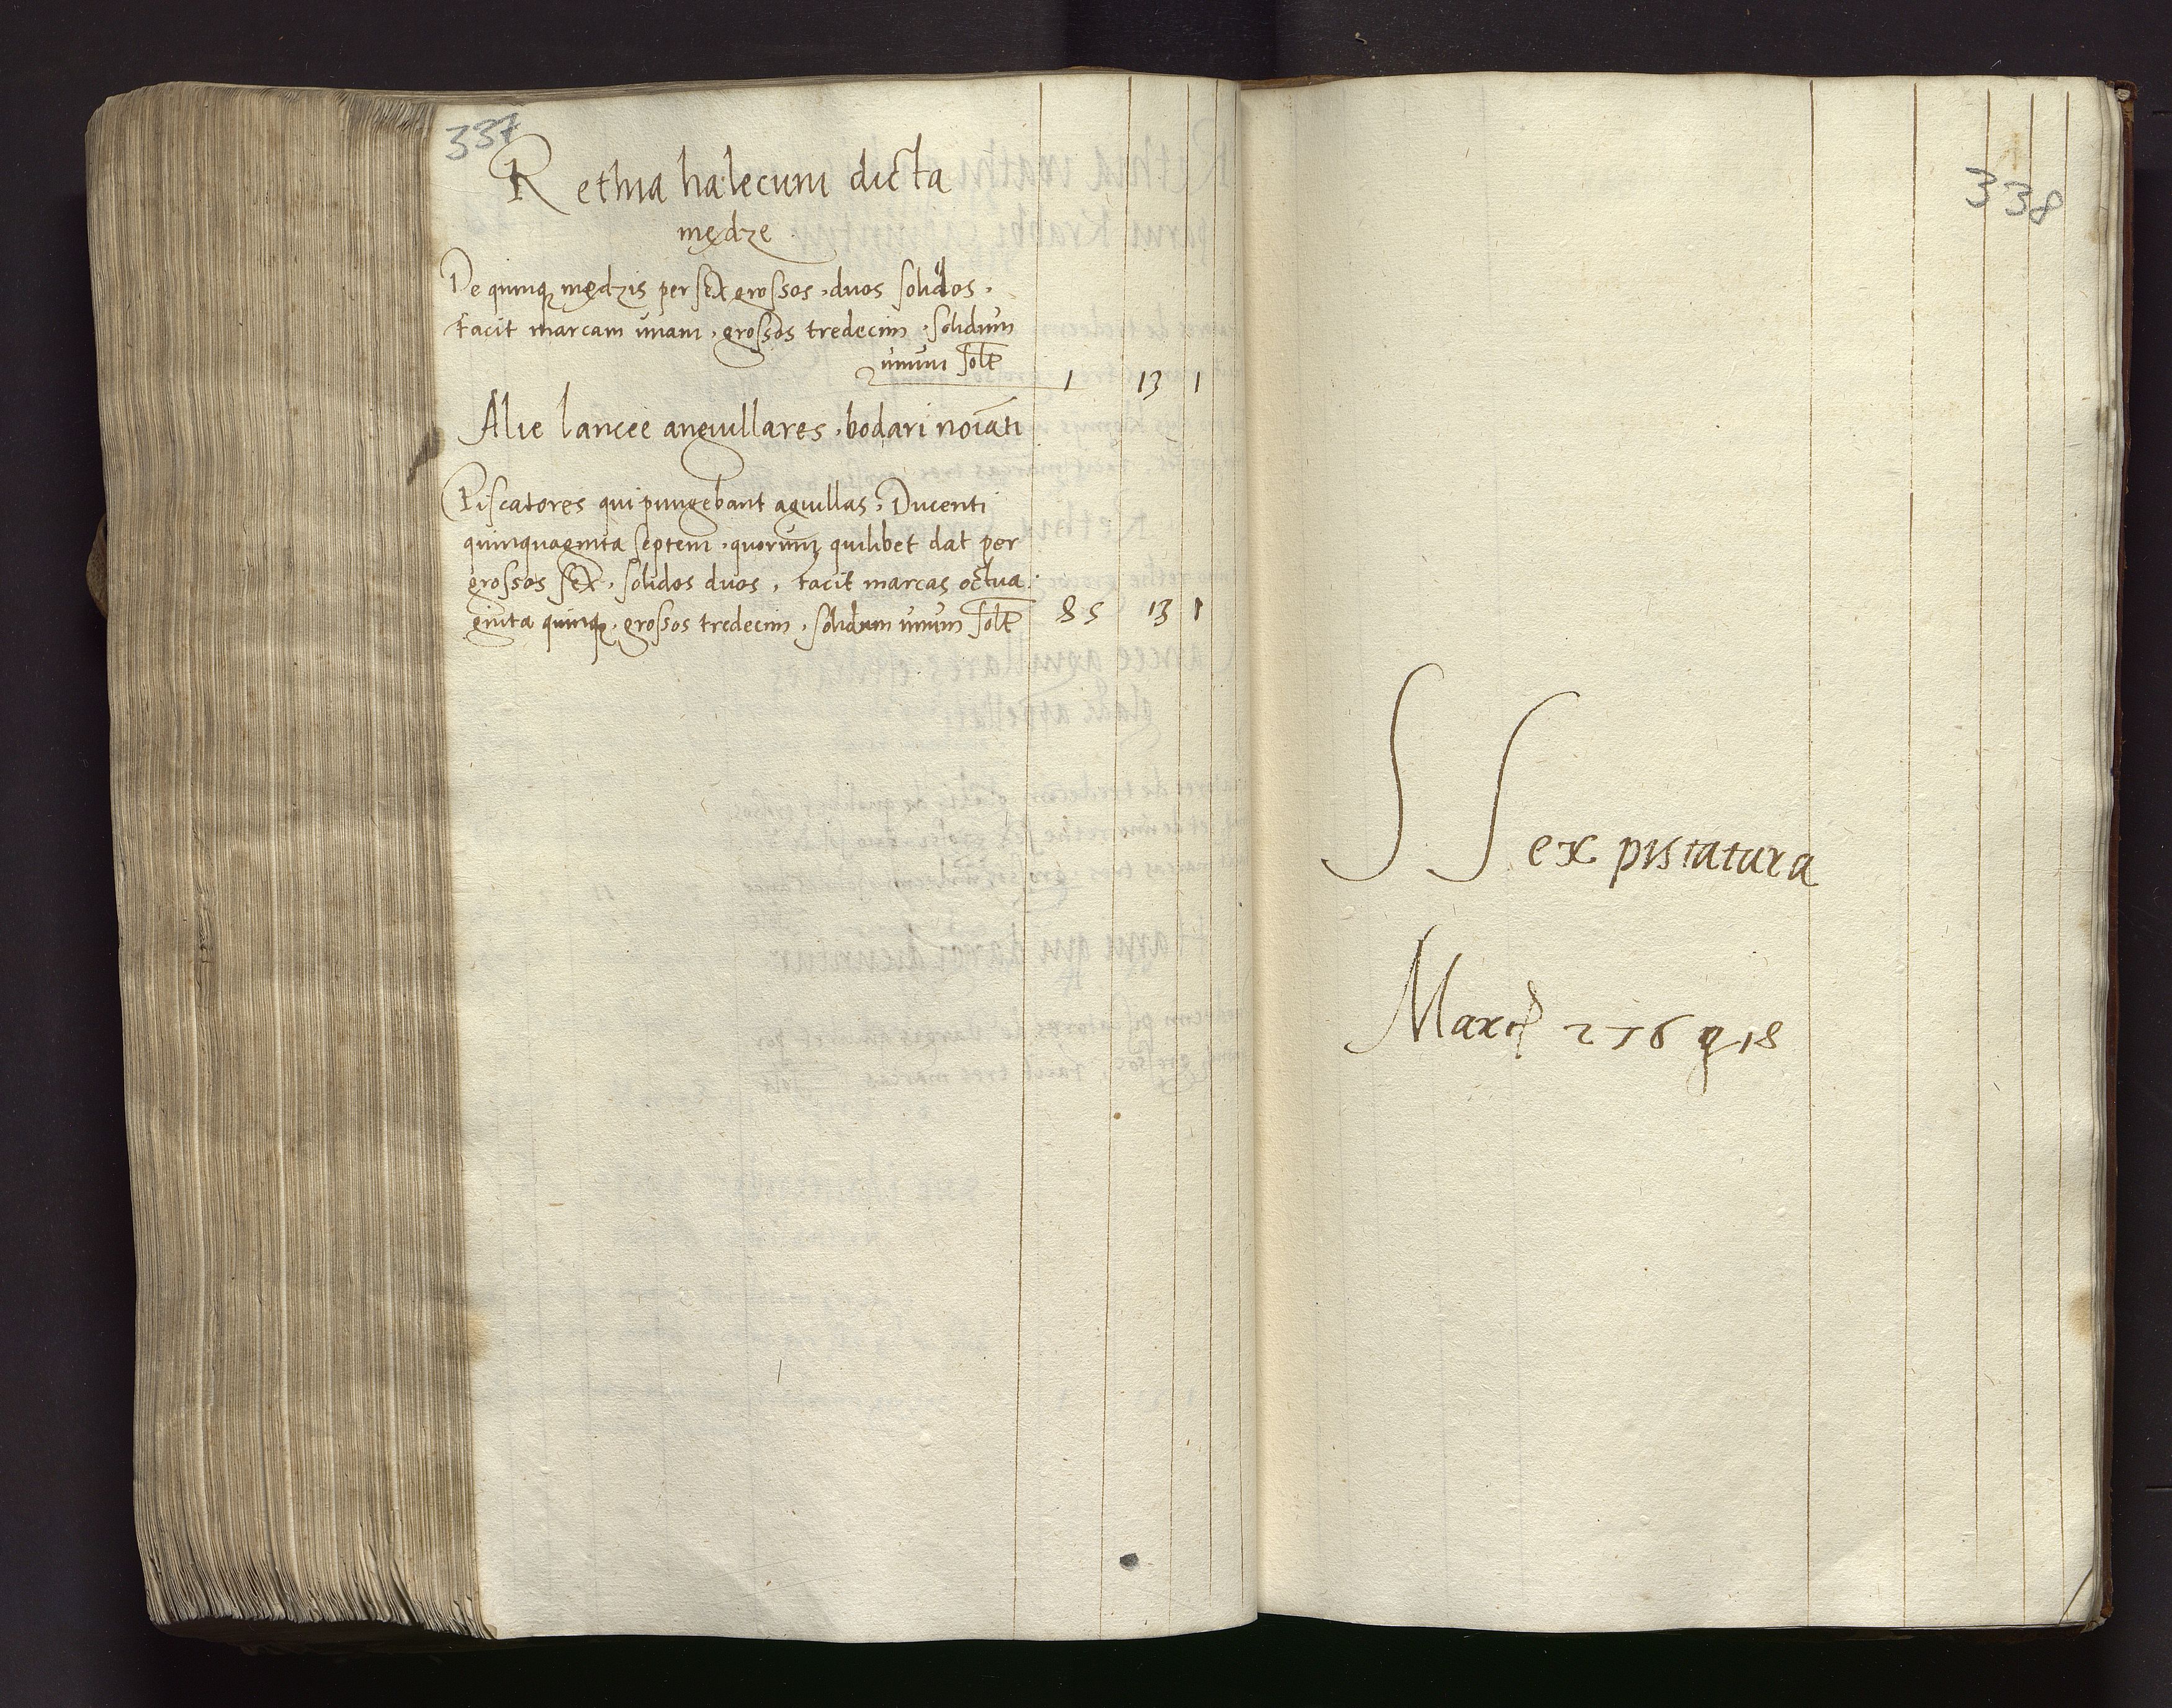 337
Rethia halecum dicta
mędze
De quinq mędzis per sex grossos, duos solidos,
facit marcam unam, grossos tredecim, solidum
unum solt 1 13 1
Alie lancee anguillares, bodari noiati
Piscatores qui pungebant aguillas, Ducenti
quinquaginta septem, quorum quilibet dat per
grossos sex, solidos duos, facit marcas octua
ginta quinq, grossos tredecim, solidum unum solt 85 13 1
338
SS ex pistatura
Marc 276 g 18